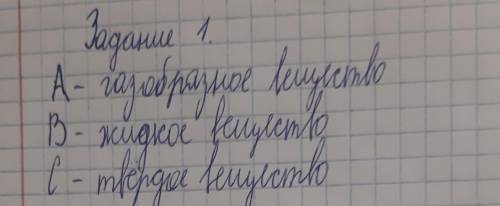 Задание 1.
А - газообразное вещество
В - жидкое вещество
С - твёрдое вещество